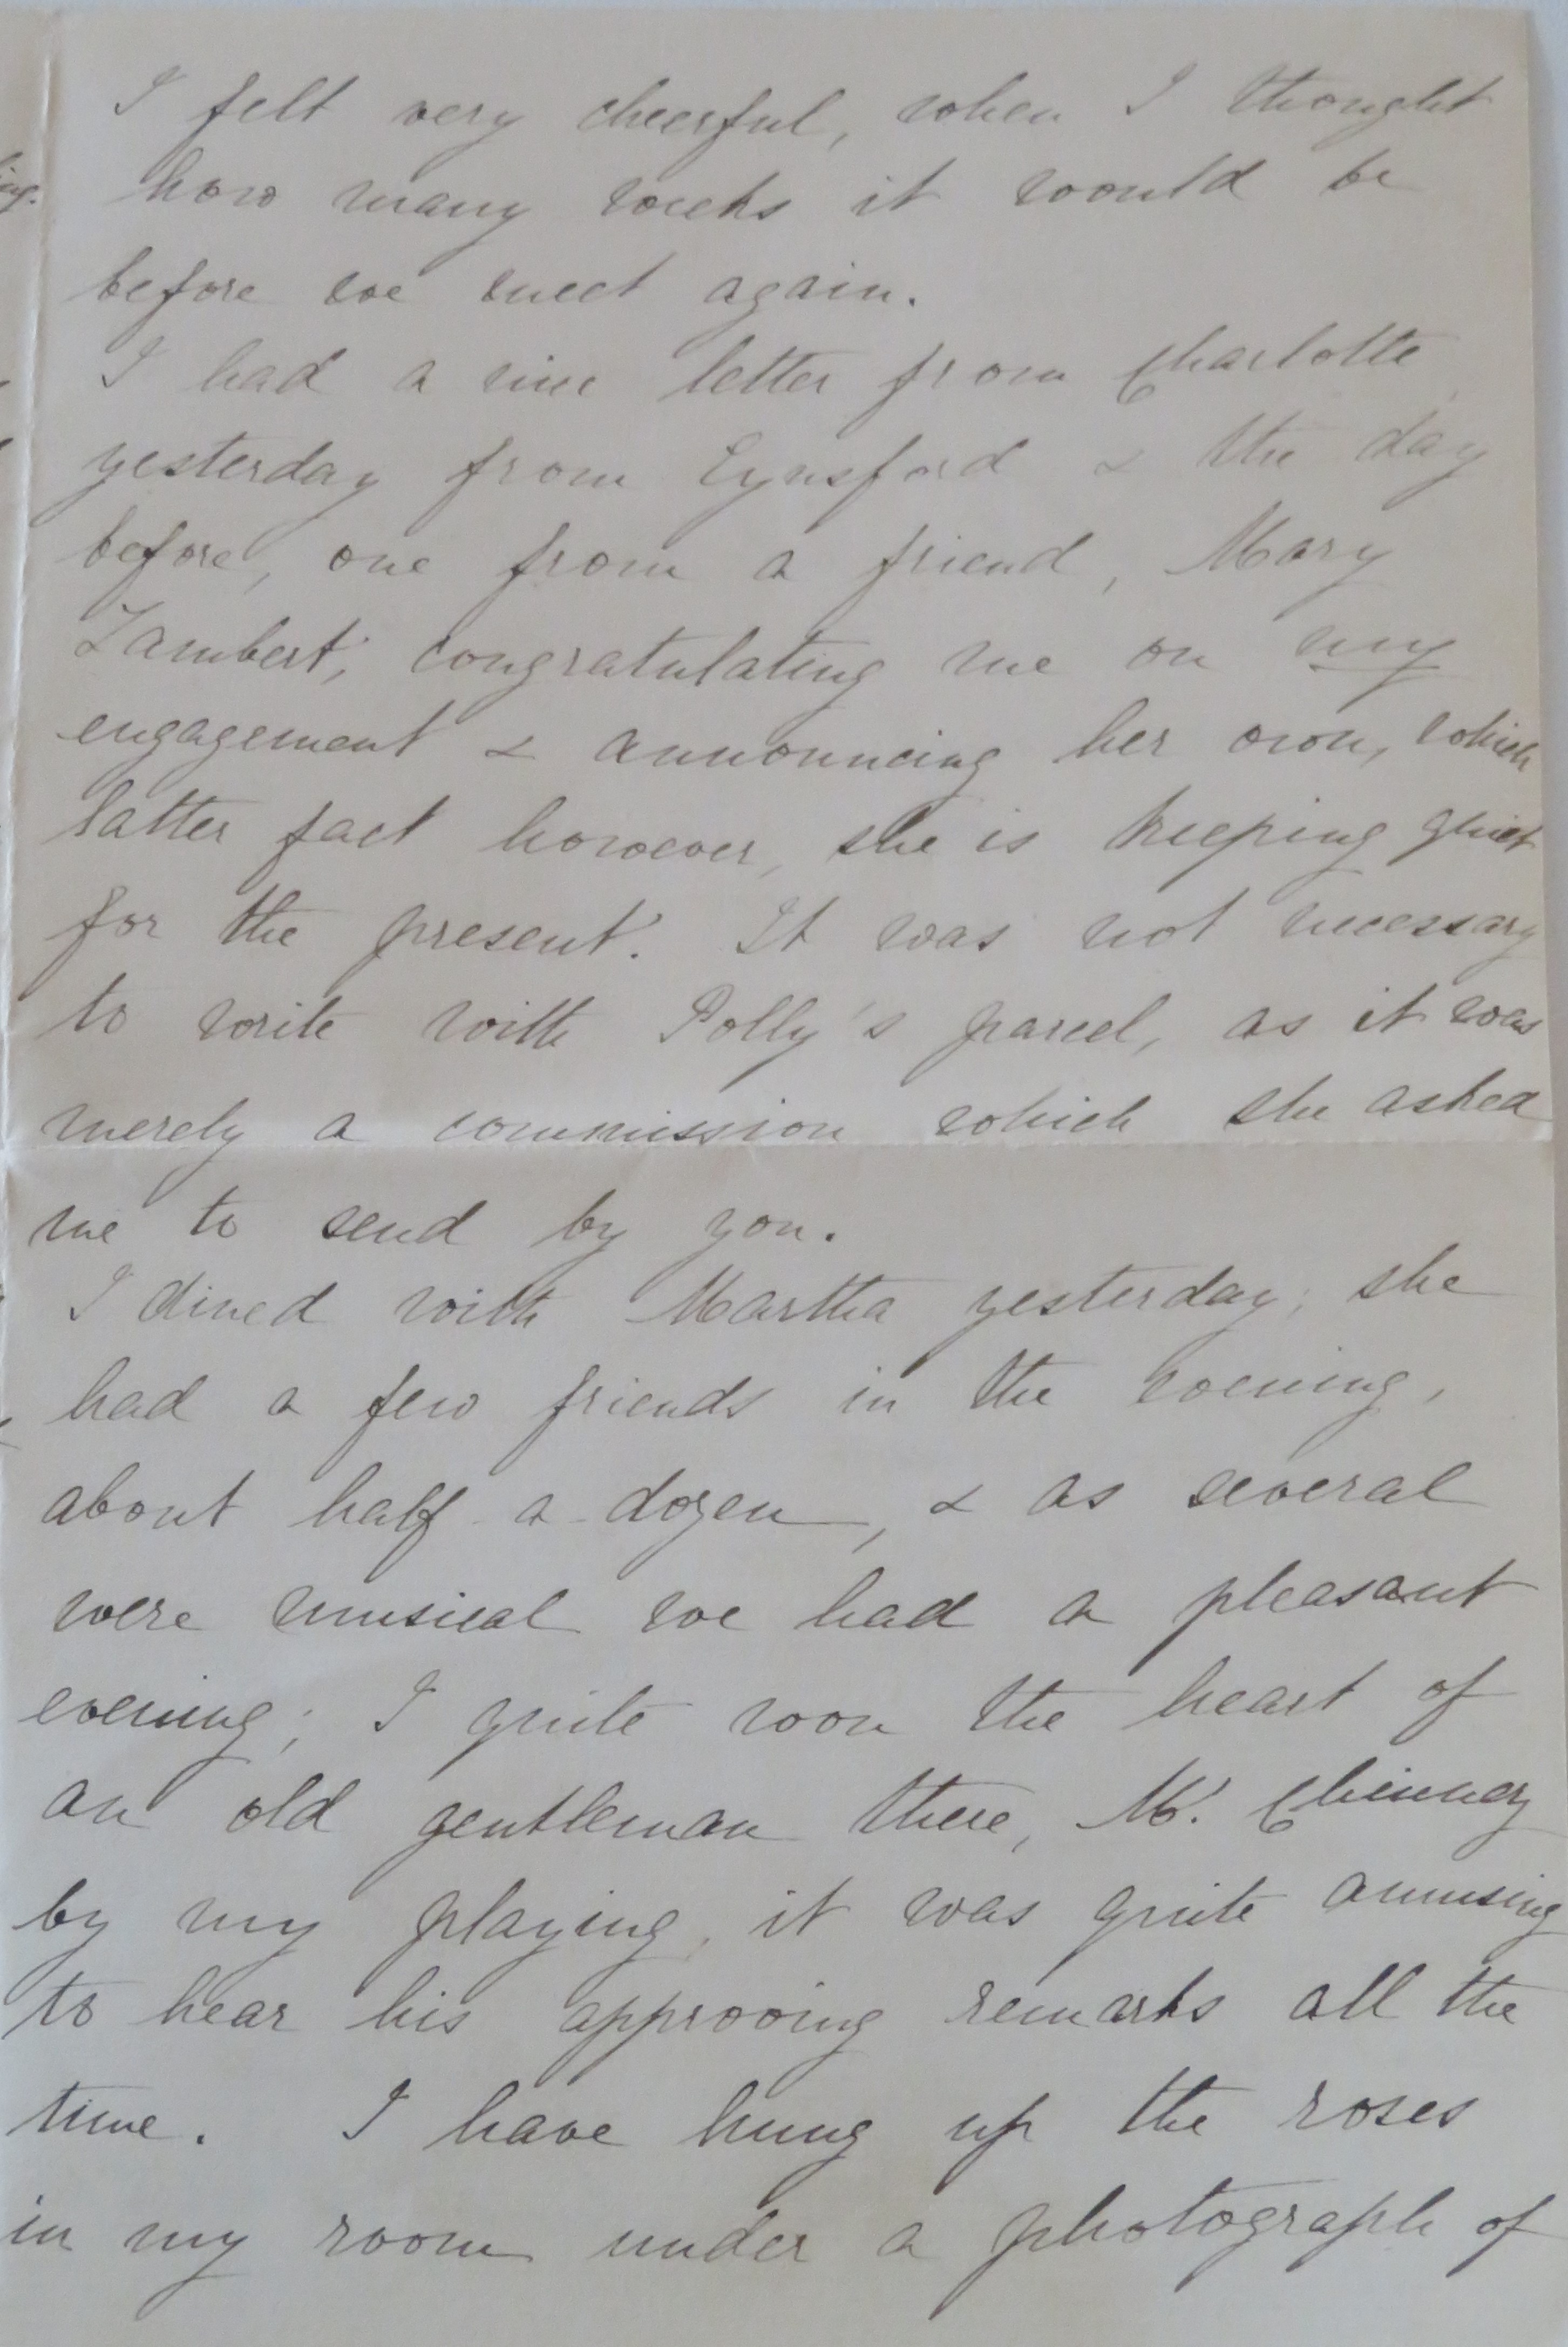 I felt very cheerful, when I thought
how many weeks it would be
before we meet again.
I had a nice letter from Charlotte
yesterday from Eynsford & the day
before, one from a friend, Mary
Lambert, congratulating me on my
engagement & announcing her own, which
latter fact however, she is keeping quiet
for the present. It was not necessary
to write with Polly's parcel, as it was
merely a commission which she asked
me to send by you.
I dined with Martha yesterday; she
had a few friends in the evening,
about half-a-dozen, & as several
were musical we had a pleasant
evening; I quite won the heart of
an old gentleman there, Mr. Chinnery
by my playing, it was quite amusing
to hear his approving remarks all the
time. I have hung up the roses
in my room under a photograph of